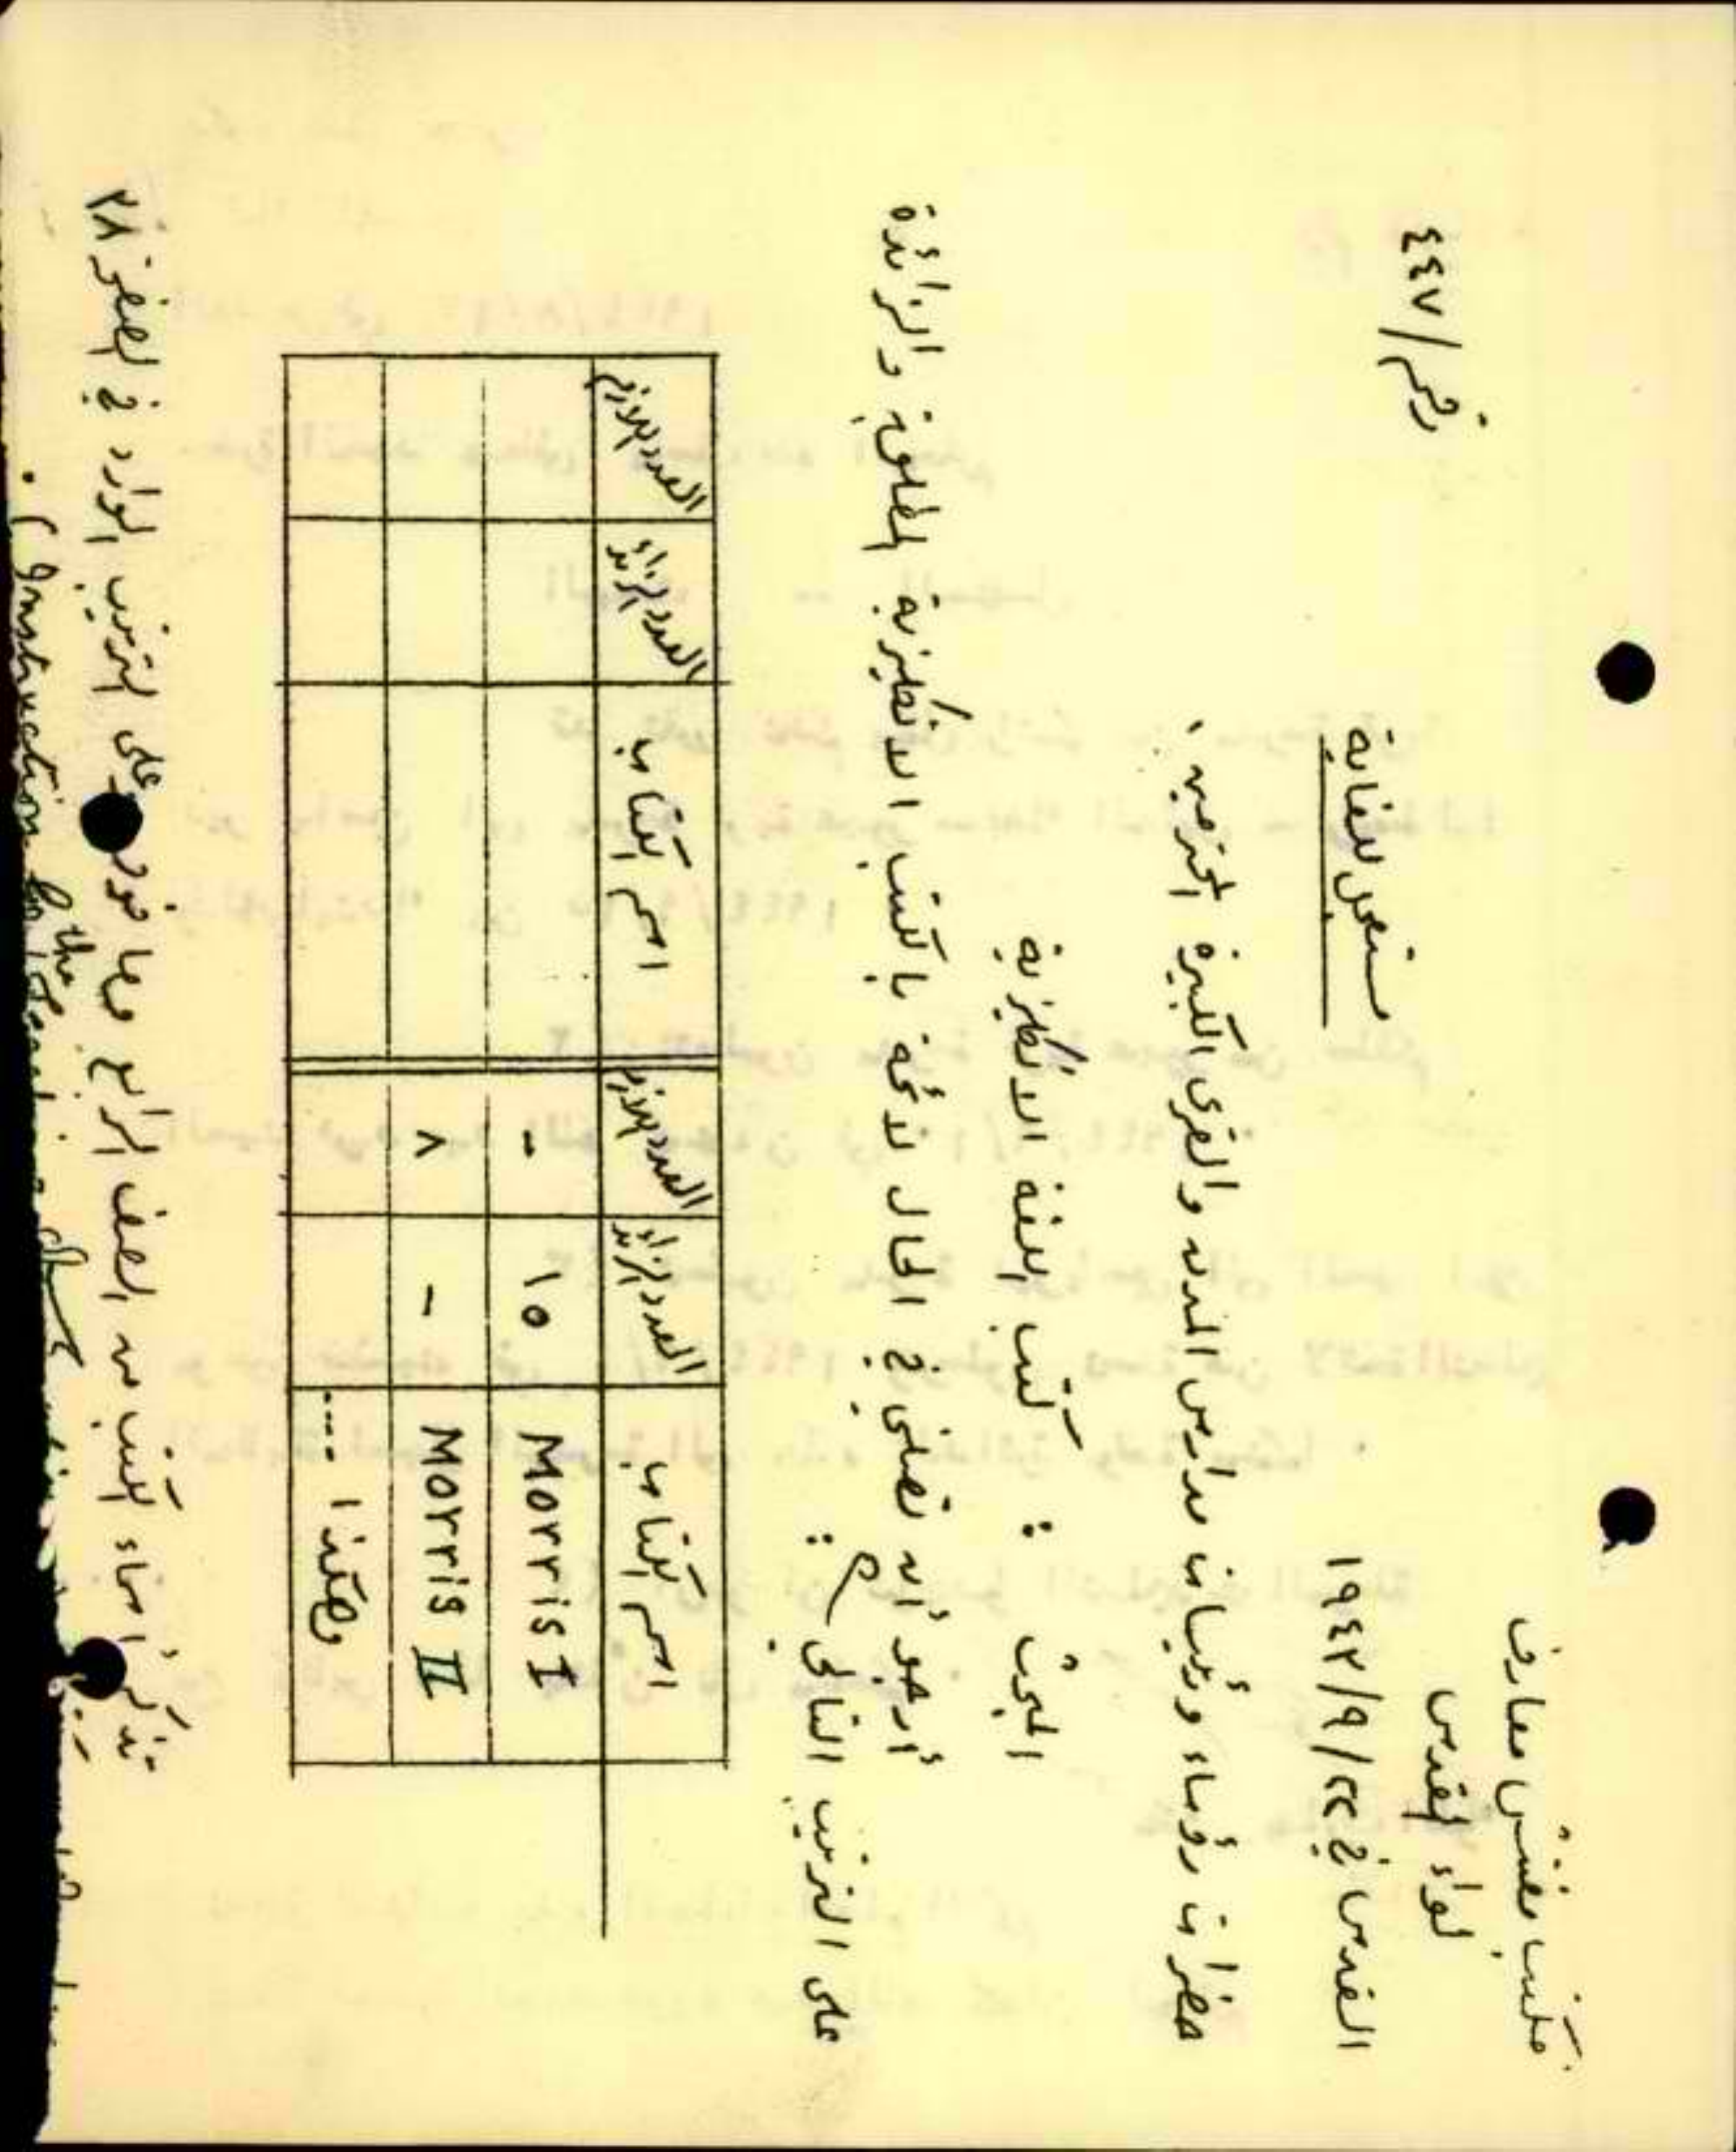 مكتب مفتش معارف
لواء القدس
رقم/٤٤٧
القدس في ٢٢/٩/١٩٤٣
مستعجل للغاية
حضرات رؤساء ورئيسات مدارس المدن والقرى الكبيرة المحترمين ،
المبحث : كتب اللغة الانكليزية
أرجو أن تصلني في الحال لائحة بالكتب الانكليزية المطلوبة والزائدة
على الترتيب التالي :
اسم الكتاب العدد الزائد العدد اللازم اسم الكتاب العدد الزائد العدد اللازم
Morris I ١٥ -
Morris II - ٨
وهكذا ....
تذكر أسماء الكتب من الصف الرابع وما فوق وعلى الترتيب الوارد في الصفحة ٢٨
the
Instruction